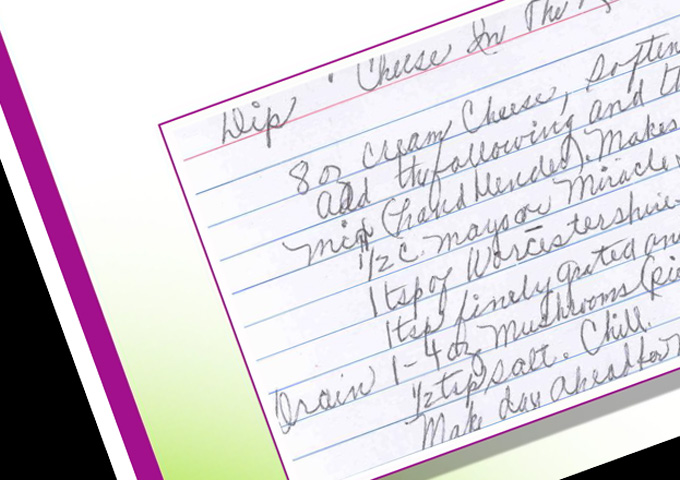 Dip . Cheese In The
8 oz cream Cheese, Soften
add the following and
mix (hand blender). Makes
1/2 c. mayo or Miracle
1 tsp of Worcestershire
1 tsp finely grated
Drain 1-4 oz Mushrooms
1/2 tsp salt. Chill.
Make day ahead